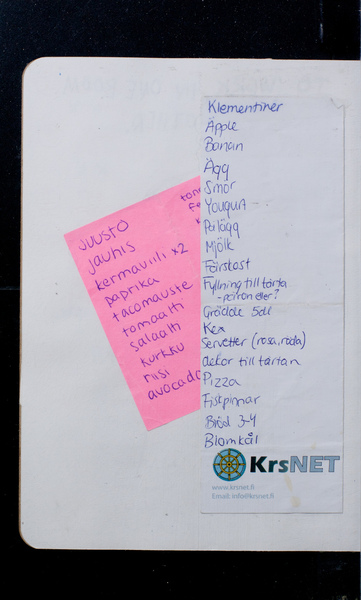 JUUSTO
jauhis
kermaviili x2
paprika
tacomauste
tomaatti
salaatti
kurkku
riisi
Klementiner
Äpple
Banan
Ägg
Smör
Yougurt
Pålägg
Mjölk
Färskost
Fyllning till tårta
- päron eller?
Grädde 5dl
Kex
Servetter (rosa, röda)
dekor till tårtan
Pizza
Fiskpinnar
Bröd 3-4
Blomkål
KrsNET
www.krsnet.fi
Email: info@krsnet.fi